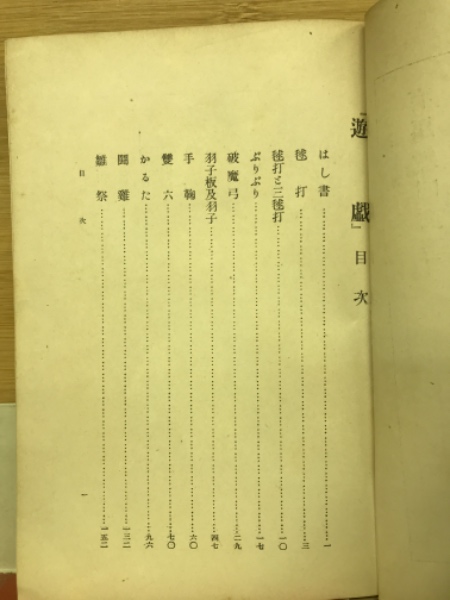 『遊戯』目次
はし書……一
毬打……三
毬打と三毬打……一〇
ぶりぶり……一七
破魔弓……二九
羽子板及羽子……四七
手鞠……六〇
雙六……七〇
かるた……九六
鬪雞……一三二
雛祭……一五二
目次
一